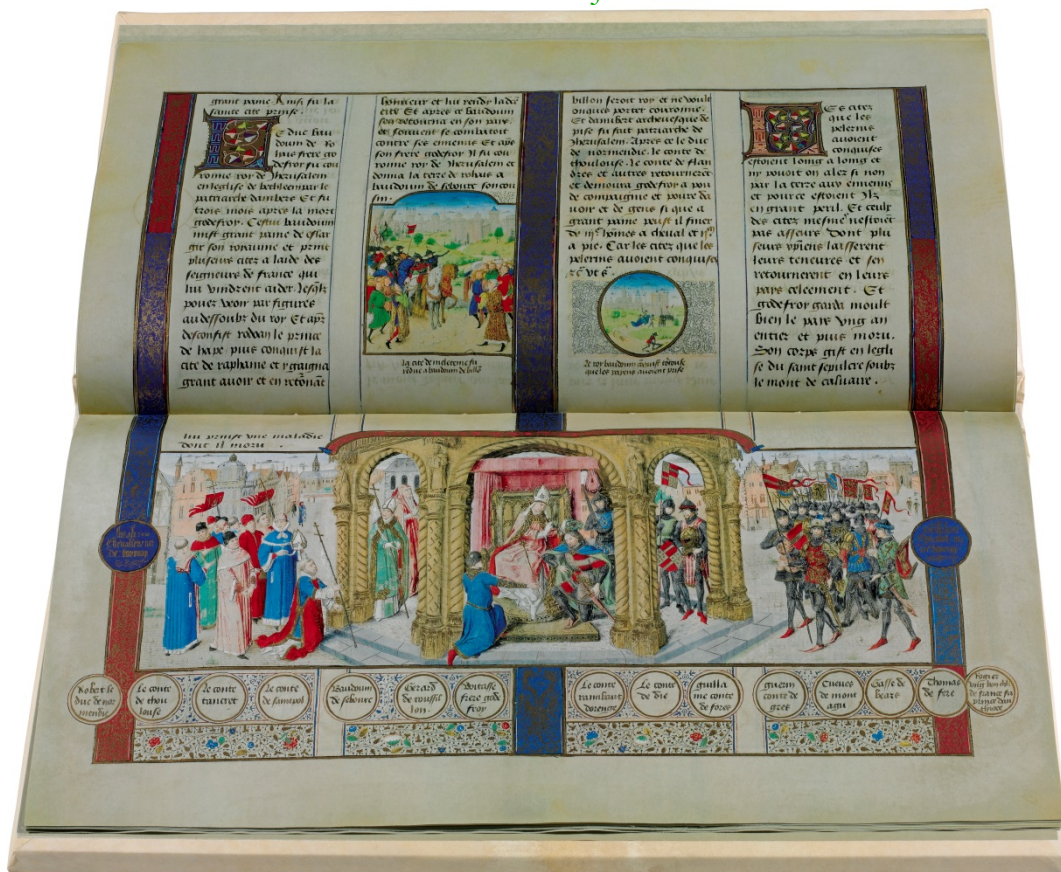 grant paine. Ainsi fu la
sainte cite prinse.
Le duc bau
doum de Ro
hais frere go
defroy fu cou
ronne roy de Jherusalem
en leglise de bethleem par le
patriarche dambert. Et fu
trois mois apres la mort
godefroy. Cestui baudouin
mist grant paine de eslar
gir son royaume et print
plusieurs citez a laide des
seigneurs de france qui
lui vindrent aider. lesqlz
pouez veoir par figures
au dessoubz du roy Et aprs
desconfist rodoan le prince
de halape puis conquist la
cite de raphanie et y gaigna
grant avoir et en retônāt
honneur et lui rendy ladce
cite Et apres ce baudouin
son retourna en son pays.
et souvent se combatoit
contre ses ennemis Et aps
son frere godefroy Il fu cou
ronne roy de Jherusalem et
donna la terre de rohais a
baudouin de sebourc son cou
sin.
la cite de melitene fu
rendue a baudouin de
billon seroit roy et ne voult
onques porter couronne.
Et dambert archevesque de
pise fu fait patriarche de
Jherusalem. Apres ce le duc
de normendie. le conte de
thoulouse. le conte de flan
dres et autres retournerēt
et demoura godefroy a pou
de compaignie et pou de
avoir et de gens si que a
grant paine peust il finer
de iijᶜ homes a cheval et ijᵐ
a pie. Car les citez que les
pelerins avoient conquises
le roy baudouin
que les paiens avoient prise
Les citez
que les
pelerins
avoient
conquises
estoient loing a loing et
ny pouoit on aler si non
par la terre aux ennemis
et pource estoient Ilz
en grant peril. Et ceulx
des citez mesme nestoiēt
pas asseurs Dont plu
seurs xp̄iens laisserent
leurs teneures et sen
retournerent en leurs
pays celeement. Et
godefroy garda moult
bien le pays ung an
entier et puis moru.
Son corps gist en legli
se du saint sepulcre soubz
le mont de calvaire.
lui prinst une maladie
dont il moru.
Robert le
duc de nor
mendie
Le conte
de thou
louse
Le conte
tancret
Le conte
de saintpol
Baudouin
de sebourc
Gerard
de roussil
lon.
Wistasse
frere gode
froy
Le conte
raimbaut
dorenge
Le conte
de die
guilla
me conte
de fores
guerin
conte de
gres
Cuenes
de mont
agu
Gasse de
bears
Thomas
de fere